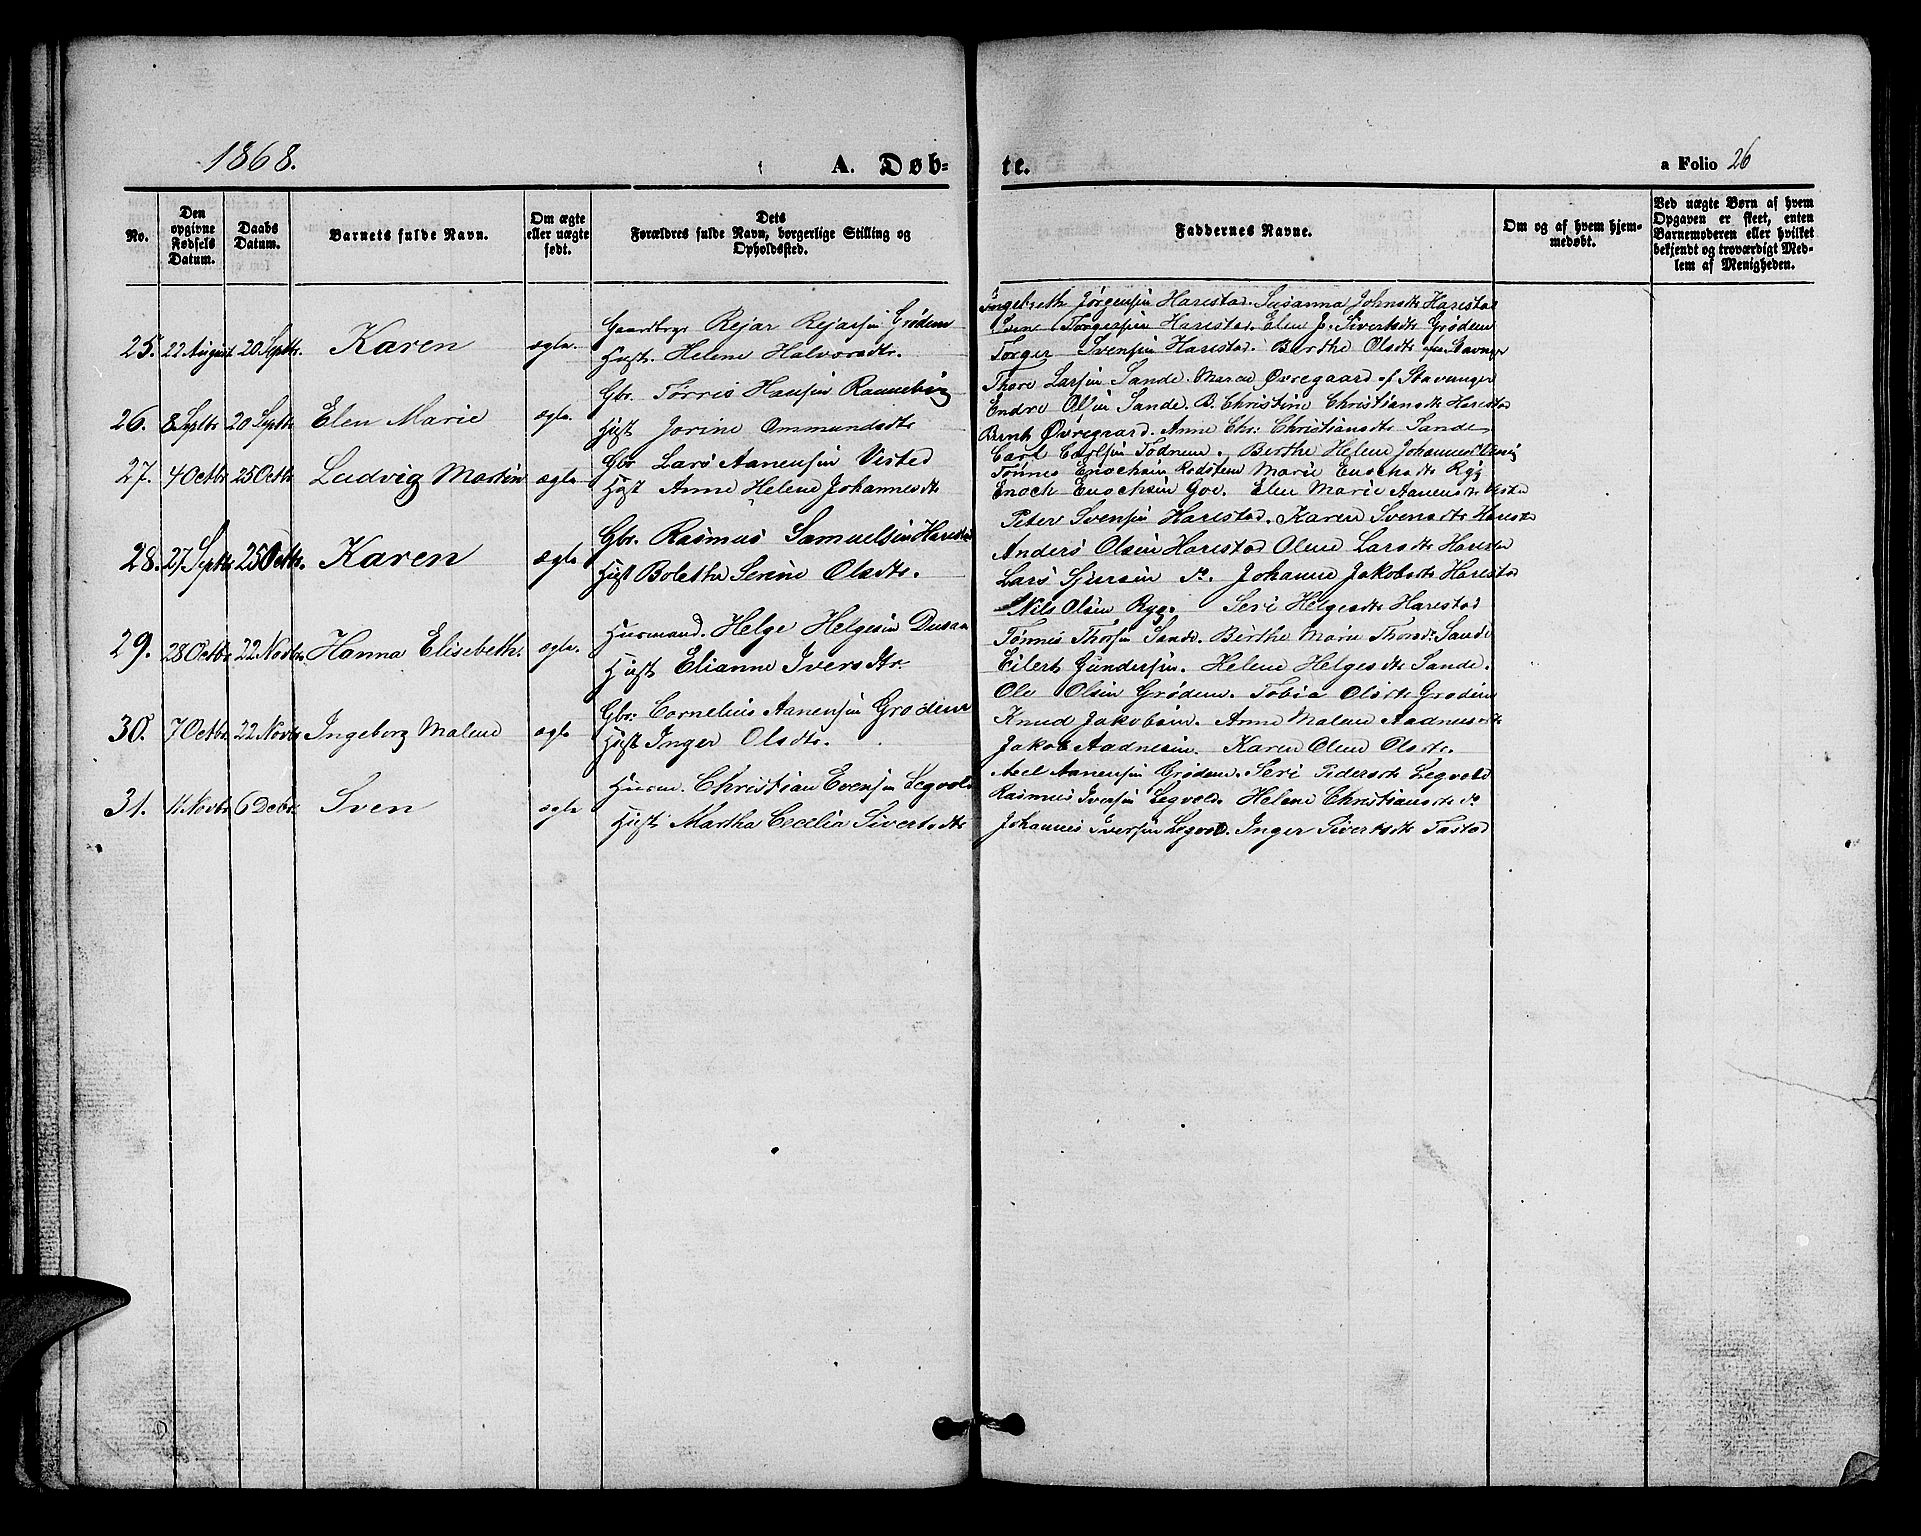 1868.
A. Døb-
te.
a Folio 26
No.
Den opgivne Fødsels Datum.
Daabs Datum.
Barnets fulde Navn.
Om ægte eller uægte født.
Dets Forældres fulde Navn, borgerlige Stilling og Opholdssted.
Faddernes Navne.
Om og af hvem hjem-
medøbt.
Ved uægte Børn af hvem
Opgaven er skeet, enten
Barnemoderen eller hvilket
bekjendt og troværdigt Med-
lem af Menigheden.
25. 22 August 20 Septbr. Karen ægte.
Rejar Rejarsen Grødem
Hust. Helene Halvorsdtr.
Ingebreth Jørgensen Harestad. Susanna Johnsdtr Harestad
Svend Torgersen Harestad. Elen J. Sivertsdtr Grødem
Torger Svensen Harestad. Berthe Olsdtr Stavnger
26. 8 Septbr 20 Septbr Elen Marie ægte.
Gbr. Torris Hansen Randeberg
Hust Jorine Ommundsdtr
Thore Larsen Sande. Maren Øvregaard af Stavanger
Endre Olsen Sande. B. Christine Christiansdtr Harestad
Bernt Øvregaard. Anne Chr: Christiansdtr Sande
27. 4 Octbr 25 Octbr Ludvig Martin ægte
Gbr Lars Aanensen Visted
Hust Anne Helene Johannesdtr
Carl Carlsen Todnem. Berthe Helene Johannesdtr
Tönnes Enochsen Marie Enochsdtr Ryg
Enoch Enochsen Goe. Elen Marie Aanensdtr Visted
28. 27 Septbr 25 Octbr. Karen ægte
Gbr. Rasmus Samuelsen Harestad
Hust Boletha Serine Olsdtr.
Peter Svensen Harestad. Karen Svensdtr Harestad
Anders Olsen Harestad Olene Larsdtr Harestad
Lars do. Johanne Jakobsdtr Harestad
29. 28 Octbr 22 Novbr Hanna Elisebeth. ægte.
Huusmand. Helge Helgesen Dusan
Hust Elianne Iversdtr
Nils Olsen Ryg. Seri Helgesdtr Harestad
Tönnes Thorsen Sande. Birthe Marie Thorsdtr Sande
Eilert Gundersen. Helene Helgesdtr Sande.
30. 7 Octbr. 22 Novbr Ingeborg Malene ægte
Gbr: Cornelius Aanensen Grødem
Hust Inger Olsdtr.
Ole Olsen Grødem. Tobia Olsdtr Grødem
Knud Jakobsen. Anne Malene Aadnesdtr
Jakob Aadnesen. Karen Olene Olsdtr.
31. 11 Novbr. 6 Decbr. Sven ægte
Huusm. Christian Evensen Legvold
Hust. Martha Cecilia Sivertsdtr
Axel Aanensen Grødem. Seri Pedersdtr Legvold
Rasmus Iversen Legvold. Helene Christiansdtr do
Johannes Iversen Legvold. Inger Sivertsdtr Tastad